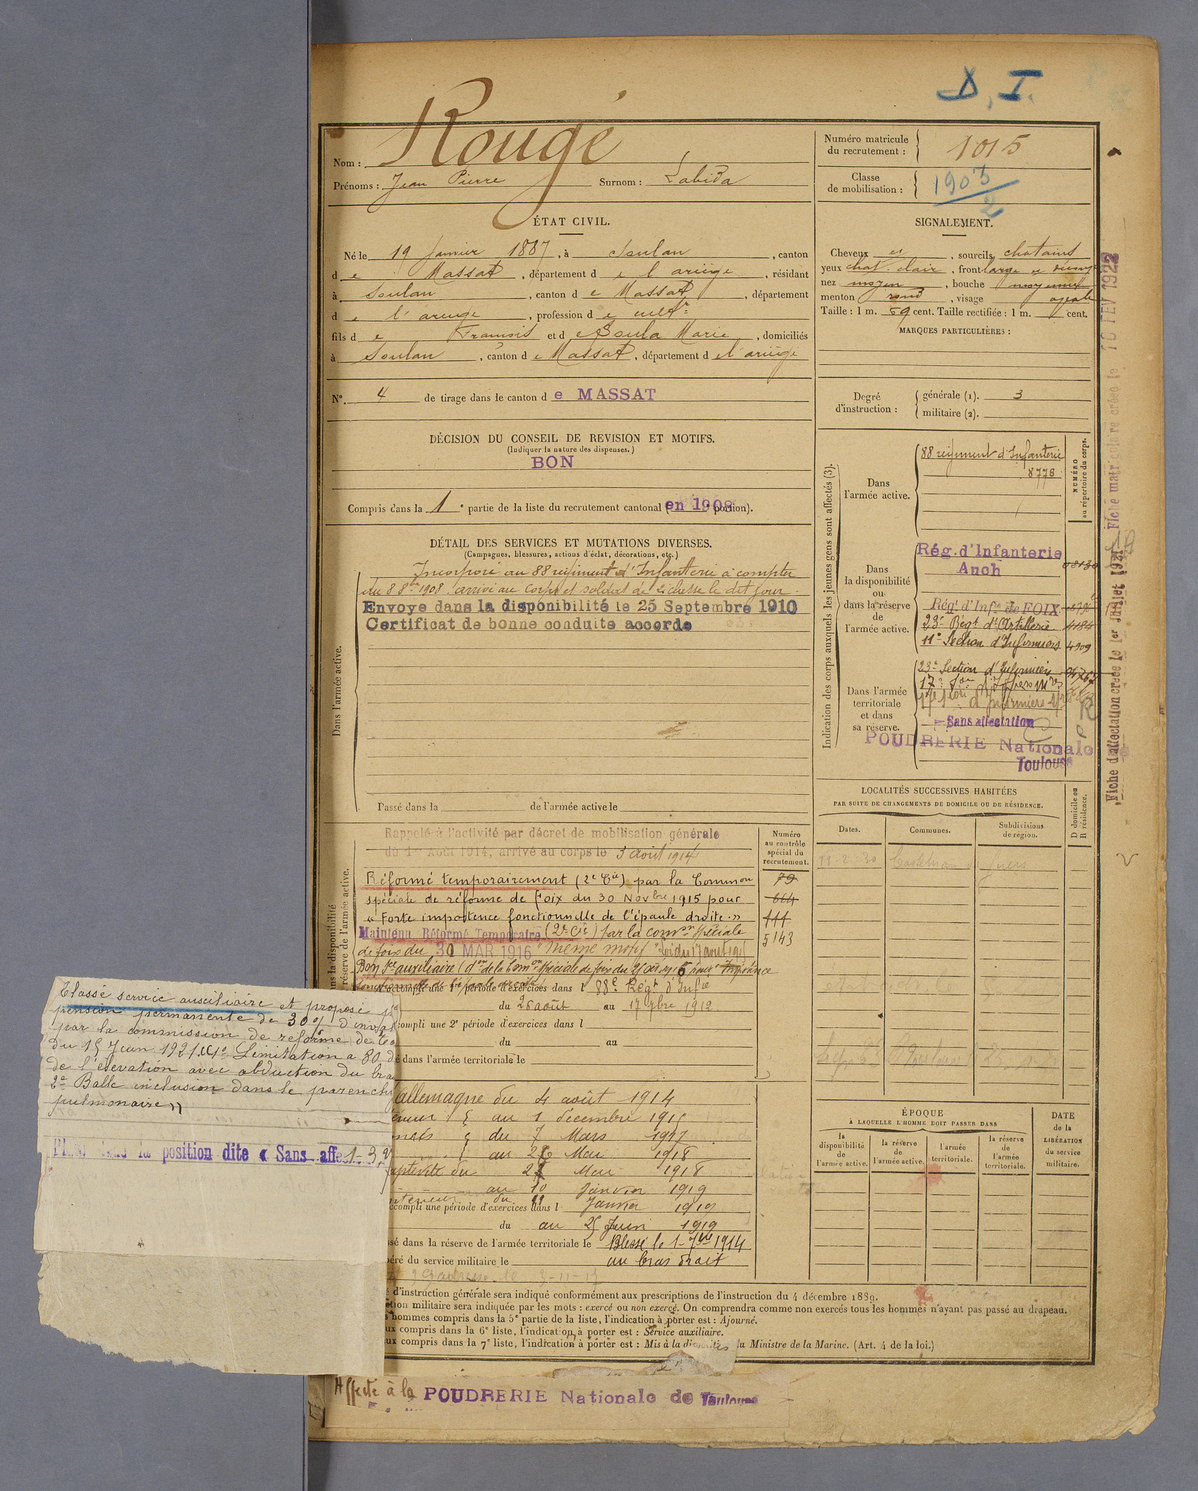 D. I.
Nom : Rougé
Prénoms : Jean Pierre Surnom : Labida
Numéro matricule du recrutement : 1015
Classe de mobilisation : 1903/2
ÉTAT CIVIL.
Né le 19 Janvier 1887, à Soulan, canton
de Massat, département de l'ariège, résidant
à Soulan, canton de Massat, département
de l'ariège, profession de cultr
fils de François et de Soula Marie, domiciliés
à Soulan, canton de Massat, département de l'ariège
N° 4 de tirage dans le canton de MASSAT
DÉCISION DU CONSEIL DE REVISION ET MOTIFS.
(Indiquer la nature des dispenses.)
BON
Compris dans la 1e partie de la liste du recrutement cantonal (en 1908 portion).
SIGNALEMENT.
Cheveux et, sourcils chatains
yeux chat. clair, front large
nez moyen, bouche moyenne
menton rond, visage ovale
Taille : 1 m. 59 cent. Taille rectifiée : 1 m. cent.
MARQUES PARTICULIÈRES :
Degré d'instruction : générale (1). 3
militaire (2).
DÉTAIL DES SERVICES ET MUTATIONS DIVERSES.
(Campagnes, blessures, actions d'éclat, décorations, etc.)
Dans l'armée active.
Incorporé au 88 régiment d'Infanterie à compter
du 8 8bre 1908. arrivé au corps et soldat de 2e classe le dit jour
Envoyé dans la disponibilité le 25 Septembre 1910
Certificat de bonne conduite accordé
Passé dans la de l'armée active le
Indication des corps auxquels les jeunes gens sont affectés (3).
Dans l'armée active.
88 régiment d'Infanterie
8778
NUMÉRO au répertoire du corps.
Dans la disponibilité ou dans la réserve de l'armée active.
Rég. d'Infanterie
Auch
Régt d'Infie de FOIX
23e Régt d'Artillerie
11e Section d'Infirmiers 4909
Dans l'armée territoriale et dans sa réserve.
23e Section d'Infirmiers
Sans affectation
POUDRERIE Nationale
Toulouse
Fiche matriculaire créée le 10 FEV 1922
Fiche d'affectation créée le 1er Juillet 1921
LOCALITÉS SUCCESSIVES HABITÉES
PAR SUITE DE CHANGEMENTS DE DOMICILE OU DE RÉSIDENCE.
Dates. Communes. Subdivisions de région. D domicile ou R résidence.
Rappelé à l'activité par décret de mobilisation générale
du 1er Août 1914, arrivé au corps le 3 août 1914
Numéro au contrôle spécial du recrutement.
79
664
111
5143
Réformé temporairement (2e Cie) par la Common
spéciale de réforme de Foix du 30 Novbre 1915 pour
« Forte impotence fonctionnelle de l'épaule droite »
Maintenu Réformé Temporaire (2e Cie) par la comon spéciale
de foix du 30 MAR 1916 "même motif"
compli une 1re période d'exercices dans l 88e Régt d'Infie
du 26 août au 17 7bre 1912
compli une 2e période d'exercices dans l
du au
dans l'armée territoriale le
Classé service auxiliaire et proposé
pension permanente de 30% d'inval
par la commission de réforme de
du 15 Juin 1921. Limitation a 80
de l'élévation avec abduction du bra
2e Balle inclusion dans le parenchy
pulmonaire »
la position dite « Sans affe
allemagne du 4 août 1914
au 1 décembre 1915
du 7 Mars 1917
au 26 Mai 1918
captivité du 27 Mai 1918
au 10 Janvier 1919
intérieur du 11 Janvier 1919
compli une période d'exercices dans l
du au 25 Juin 1919
ssé dans la réserve de l'armée territoriale le Blessé le 1er 7bre 1914
éré du service militaire le au bras droit
ÉPOQUE
À LAQUELLE L'HOMME DOIT PASSER DANS
la disponibilité de l'armée active. la réserve de l'armée active. l'armée territoriale. la réserve de l'armée territoriale.
DATE de la LIBÉRATION du service militaire.
d'instruction générale sera indiqué conformément aux prescriptions de l'instruction du 4 décembre 1889.
ction militaire sera indiquée par les mots : exercé ou non exercé. On comprendra comme non exercés tous les hommes n'ayant pas passé au drapeau.
s hommes compris dans la 5e partie de la liste, l'indication à porter est : Ajourné.
ux compris dans la 6e liste, l'indication à porter est : Service auxiliaire.
ux compris dans la 7e liste, l'indication à porter est : Mis à la disposition du Ministre de la Marine. (Art. 4 de la loi.)
Affecté à la POUDRERIE Nationale de Toulouse